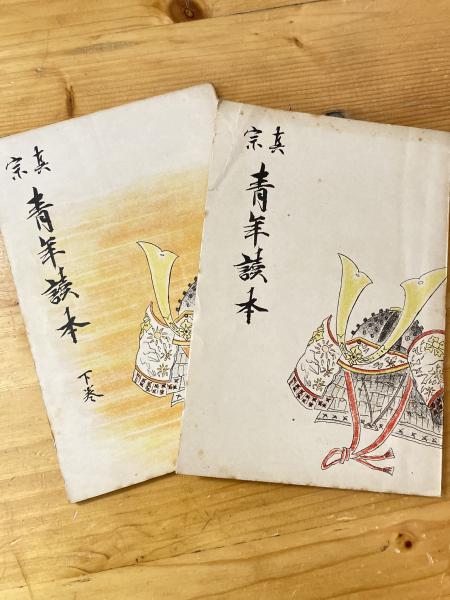 真宗
青年讀本
下巻
真宗
青年讀本